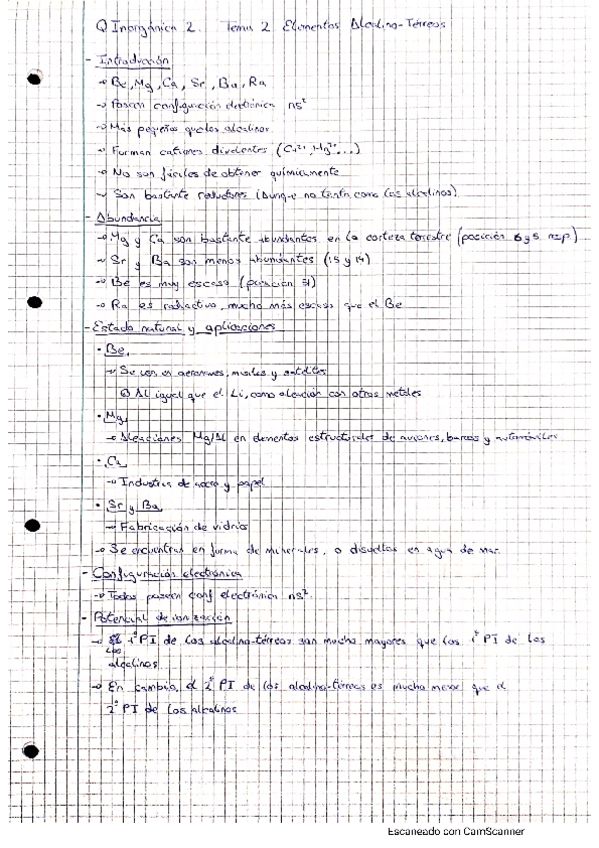 Q Inorgánica 2. Tema 2 Elementos Alcalino-Térreos
- Introducción
→ Be, Mg, Ca, Sr, Ba, Ra
→ Poseen configuración electrónica ns²
→ Más pequeños que los alcalinos
→ Forman cationes divalentes (Ca²⁺, Mg²⁺...)
→ No son fáciles de obtener químicamente
→ Son bastante reductores (Aunque no tanto como los alcalinos)
- Abundancia
→ Mg y Ca son bastante abundantes en la corteza terrestre (posición 6 y 5 resp)
→ Sr y Ba son menos abundantes (15 y 14)
→ Be es muy escaso (posición 51)
→ Ra es radiactivo, mucho más escaso que el Be
- Estado natural y aplicaciones
• Be,
→ Se usa en aeronaves, misiles y satélites
Al igual que el Li, como aleación con otros metales
• Mg,
→ Aleaciones Mg/Al en elementos estructurales de aviones, barcos y automóviles
• Ca
→ Industria de acero y papel
• Sr y Ba,
→ Fabricación de vidrio
→ Se encuentran en forma de minerales, o disueltos en agua de mar
- Configuración electrónica
→ Todos poseen conf electrónica ns².
- Potencial de ionización
→ Los 1º PI de los alcalino-térreos son mucho mayores que los 1º PI de los
alcalinos
→ En cambio, el 2º PI de los alcalino-térreos es mucho menor que el
2º PI de los alcalinos
Escaneado con CamScanner